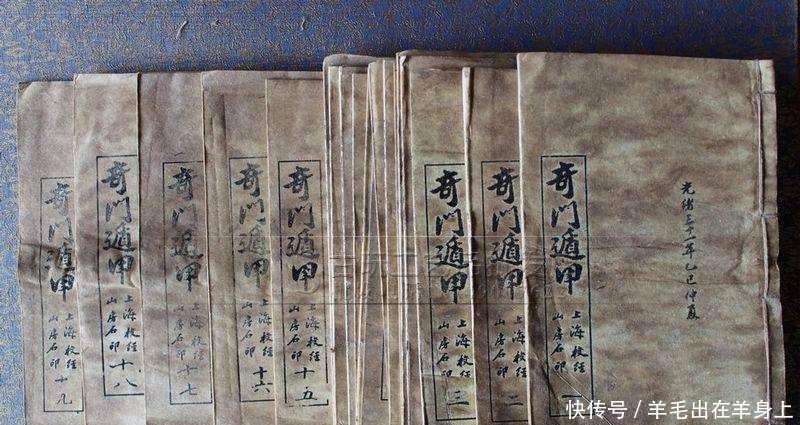 光緒三十一年乙巳仲夏
奇門遁甲
上海校經
山房石印 一
奇門遁甲
上海校經
山房石印 二
奇門遁甲
上海校經
山房石印 三
奇門遁甲
上海校經
山房石印 十五
奇門遁甲
上海校經
山房石印 十六
奇門遁甲
上海校經
山房石印 十七
奇門遁甲
上海校經
山房石印 十八
奇門遁甲
上海校經
山房石印 十九
快传号 / 羊毛出在羊身上